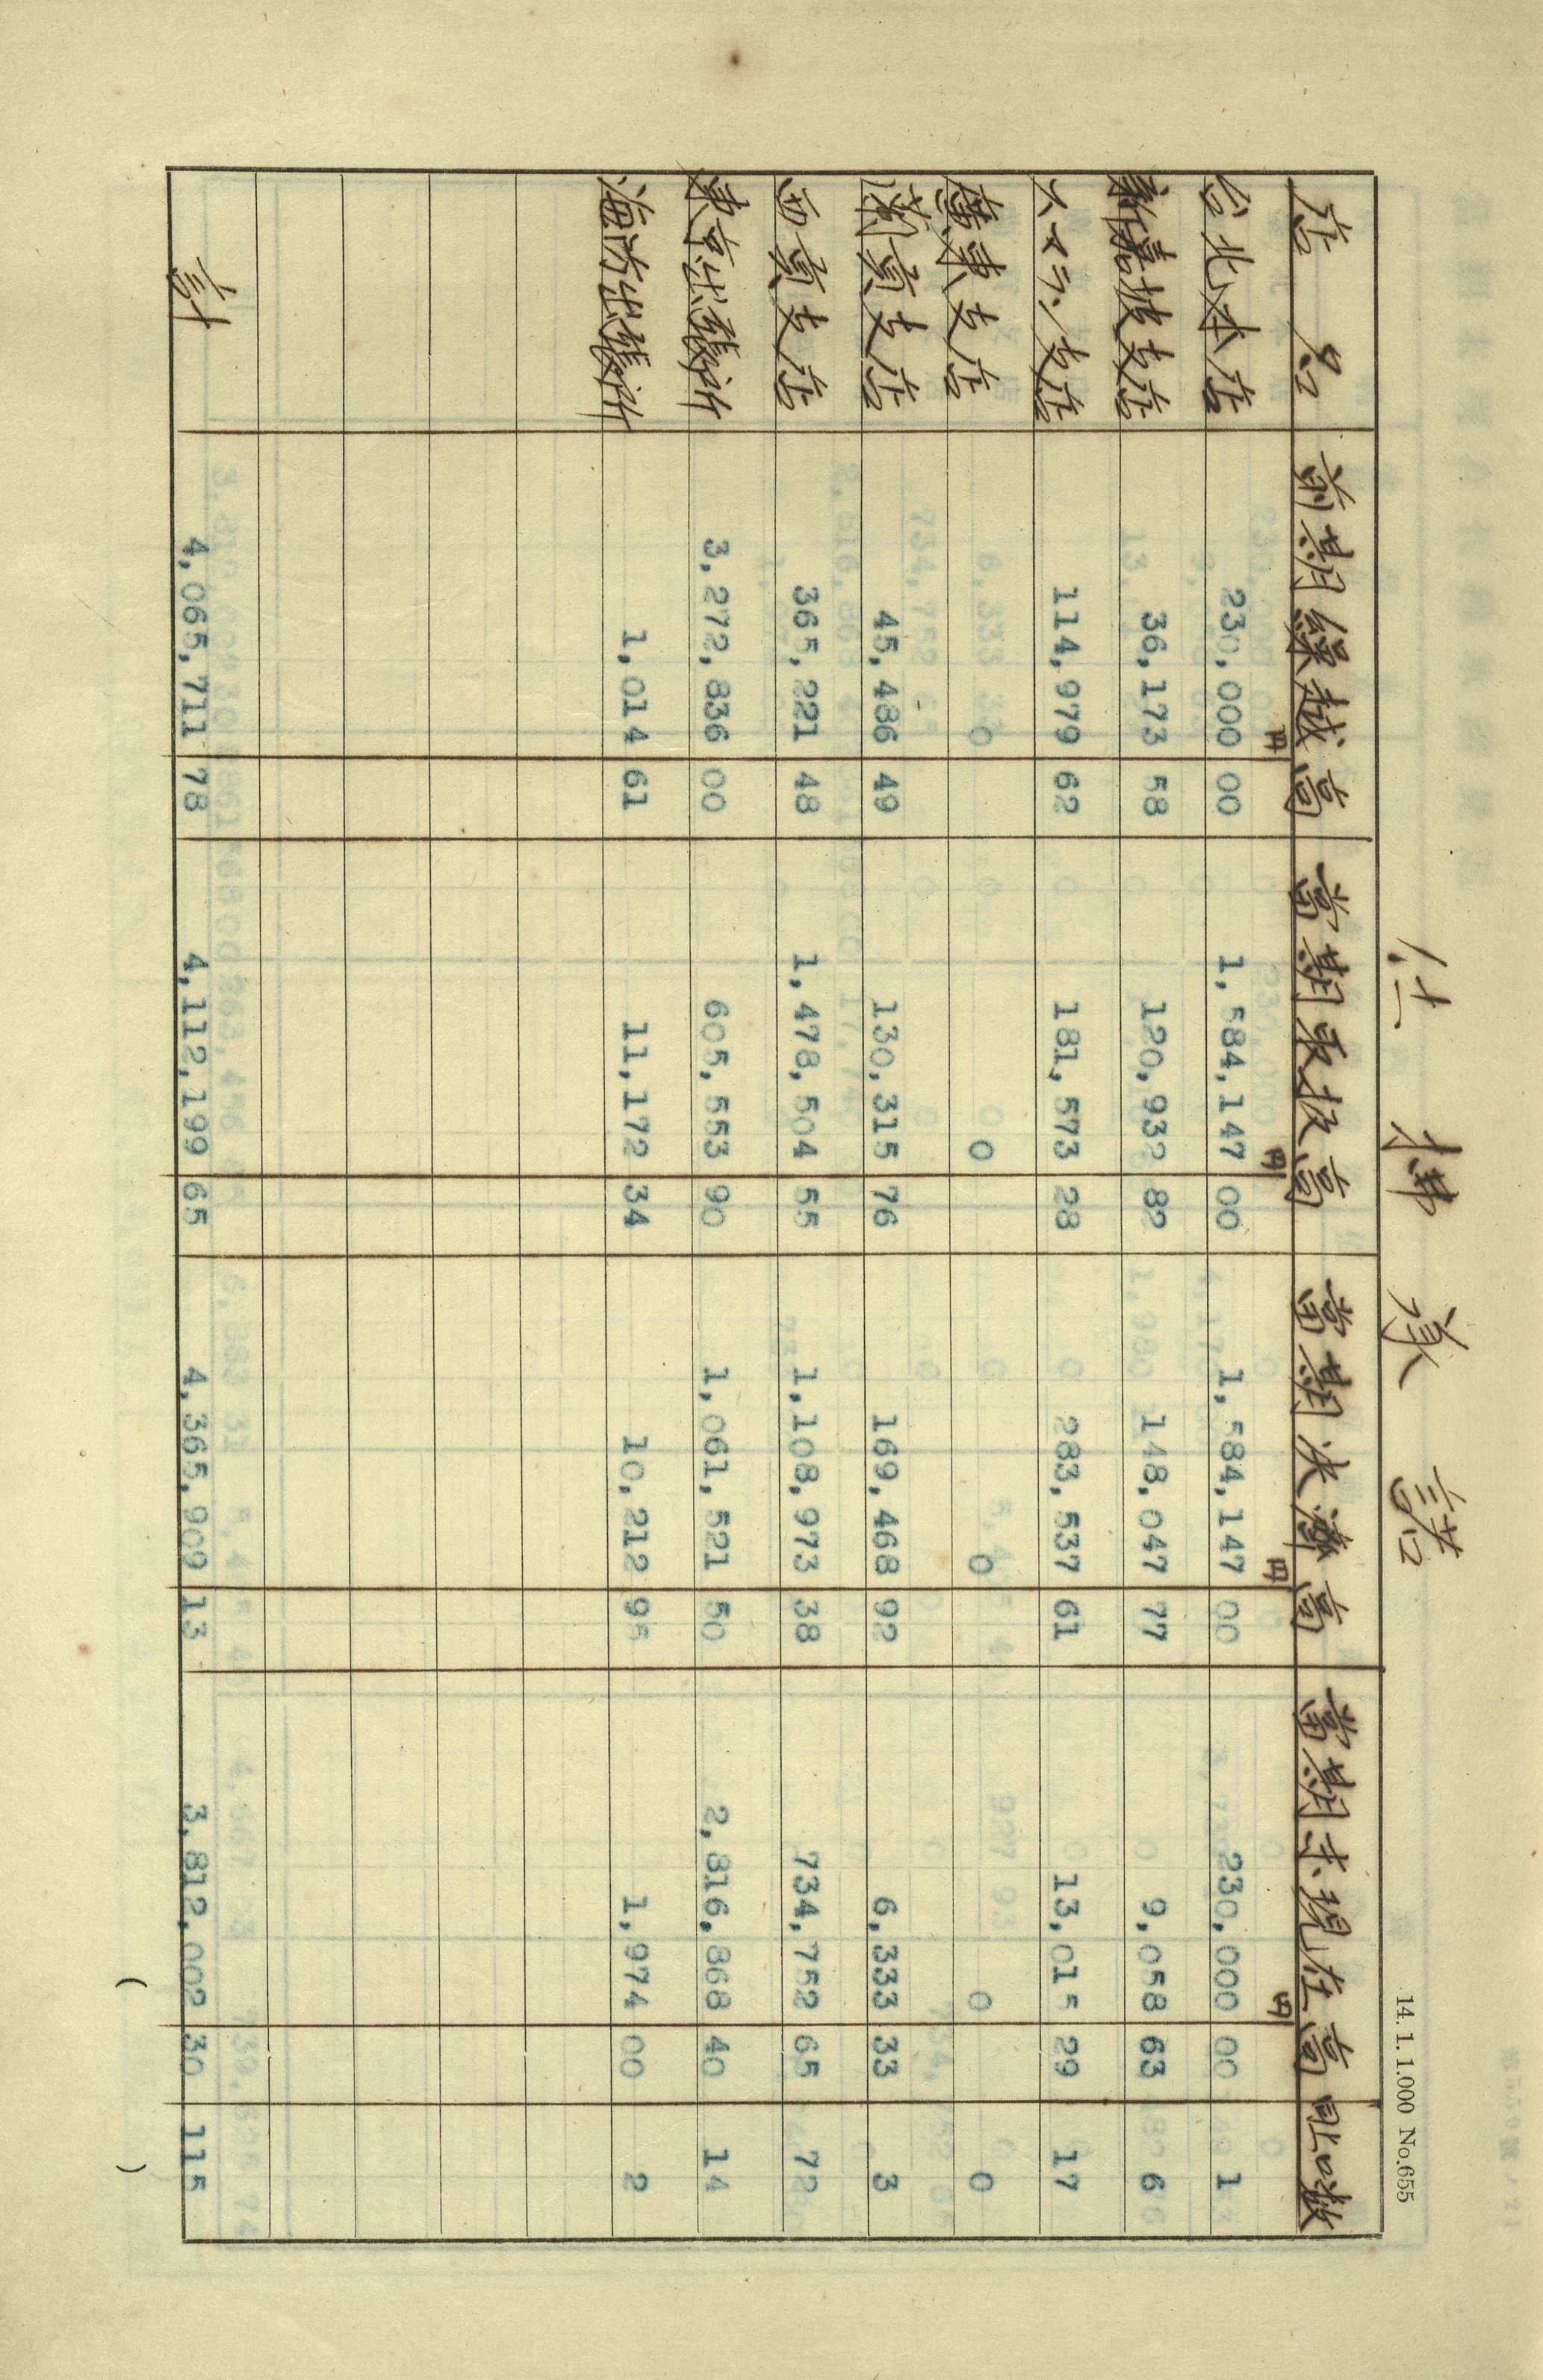 14.1.1.000 No.655
仕拂承諾
店名 前期繰越高 當期取扱高 當期決濟高 當期末現在高 同上口数
円 円 円 円
台北本店 230,000 00 1,584,147 00 1,584,147 00 230,000 00 1
新嘉坡支店 36,173 58 120,932 82 148,047 77 9,058 63 6
スマラン支店 114,979 62 181,573 28 283,537 61 13,015 29 17
廣東支店 0 0 0 0 0
蘭貢支店 45,486 49 130,315 76 169,468 92 6,333 33 3
西貢支店 365,221 48 1,478,504 55 1,108,973 38 734,752 65 72
東京出張所 3,272,836 00 605,553 90 1,061,521 50 2,816,868 40 14
海防出張所 1,014 61 11,172 34 10,212 95 1,974 00 2
計 4,065,711 78 4,112,199 65 4,365,909 13 3,812,002 30 115
( )